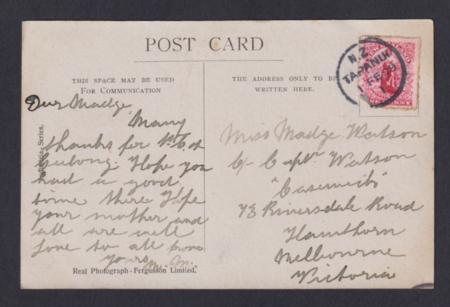 POST CARD
THIS SPACE MAY BE USED
FOR COMMUNICATION
THE ADDRESS ONLY TO BE
WRITTEN HERE.
N.Z.
TAPANUI
FE
Dear Madge
Many
thanks for P.C. of
Geelong. Hope you
had a good
time there. Hope
your mother and
all are well
Love to all from
yours M. M.
Miss Madge Watson
C/- Capt Watson
73 Riversdale Road
Hawthorn
Melbourne
Victoria
Series.
Real Photograph - Fergusson Limited.